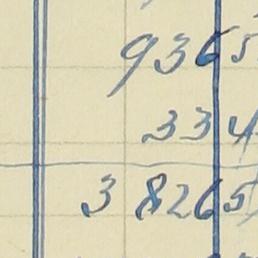 9365
334
38265